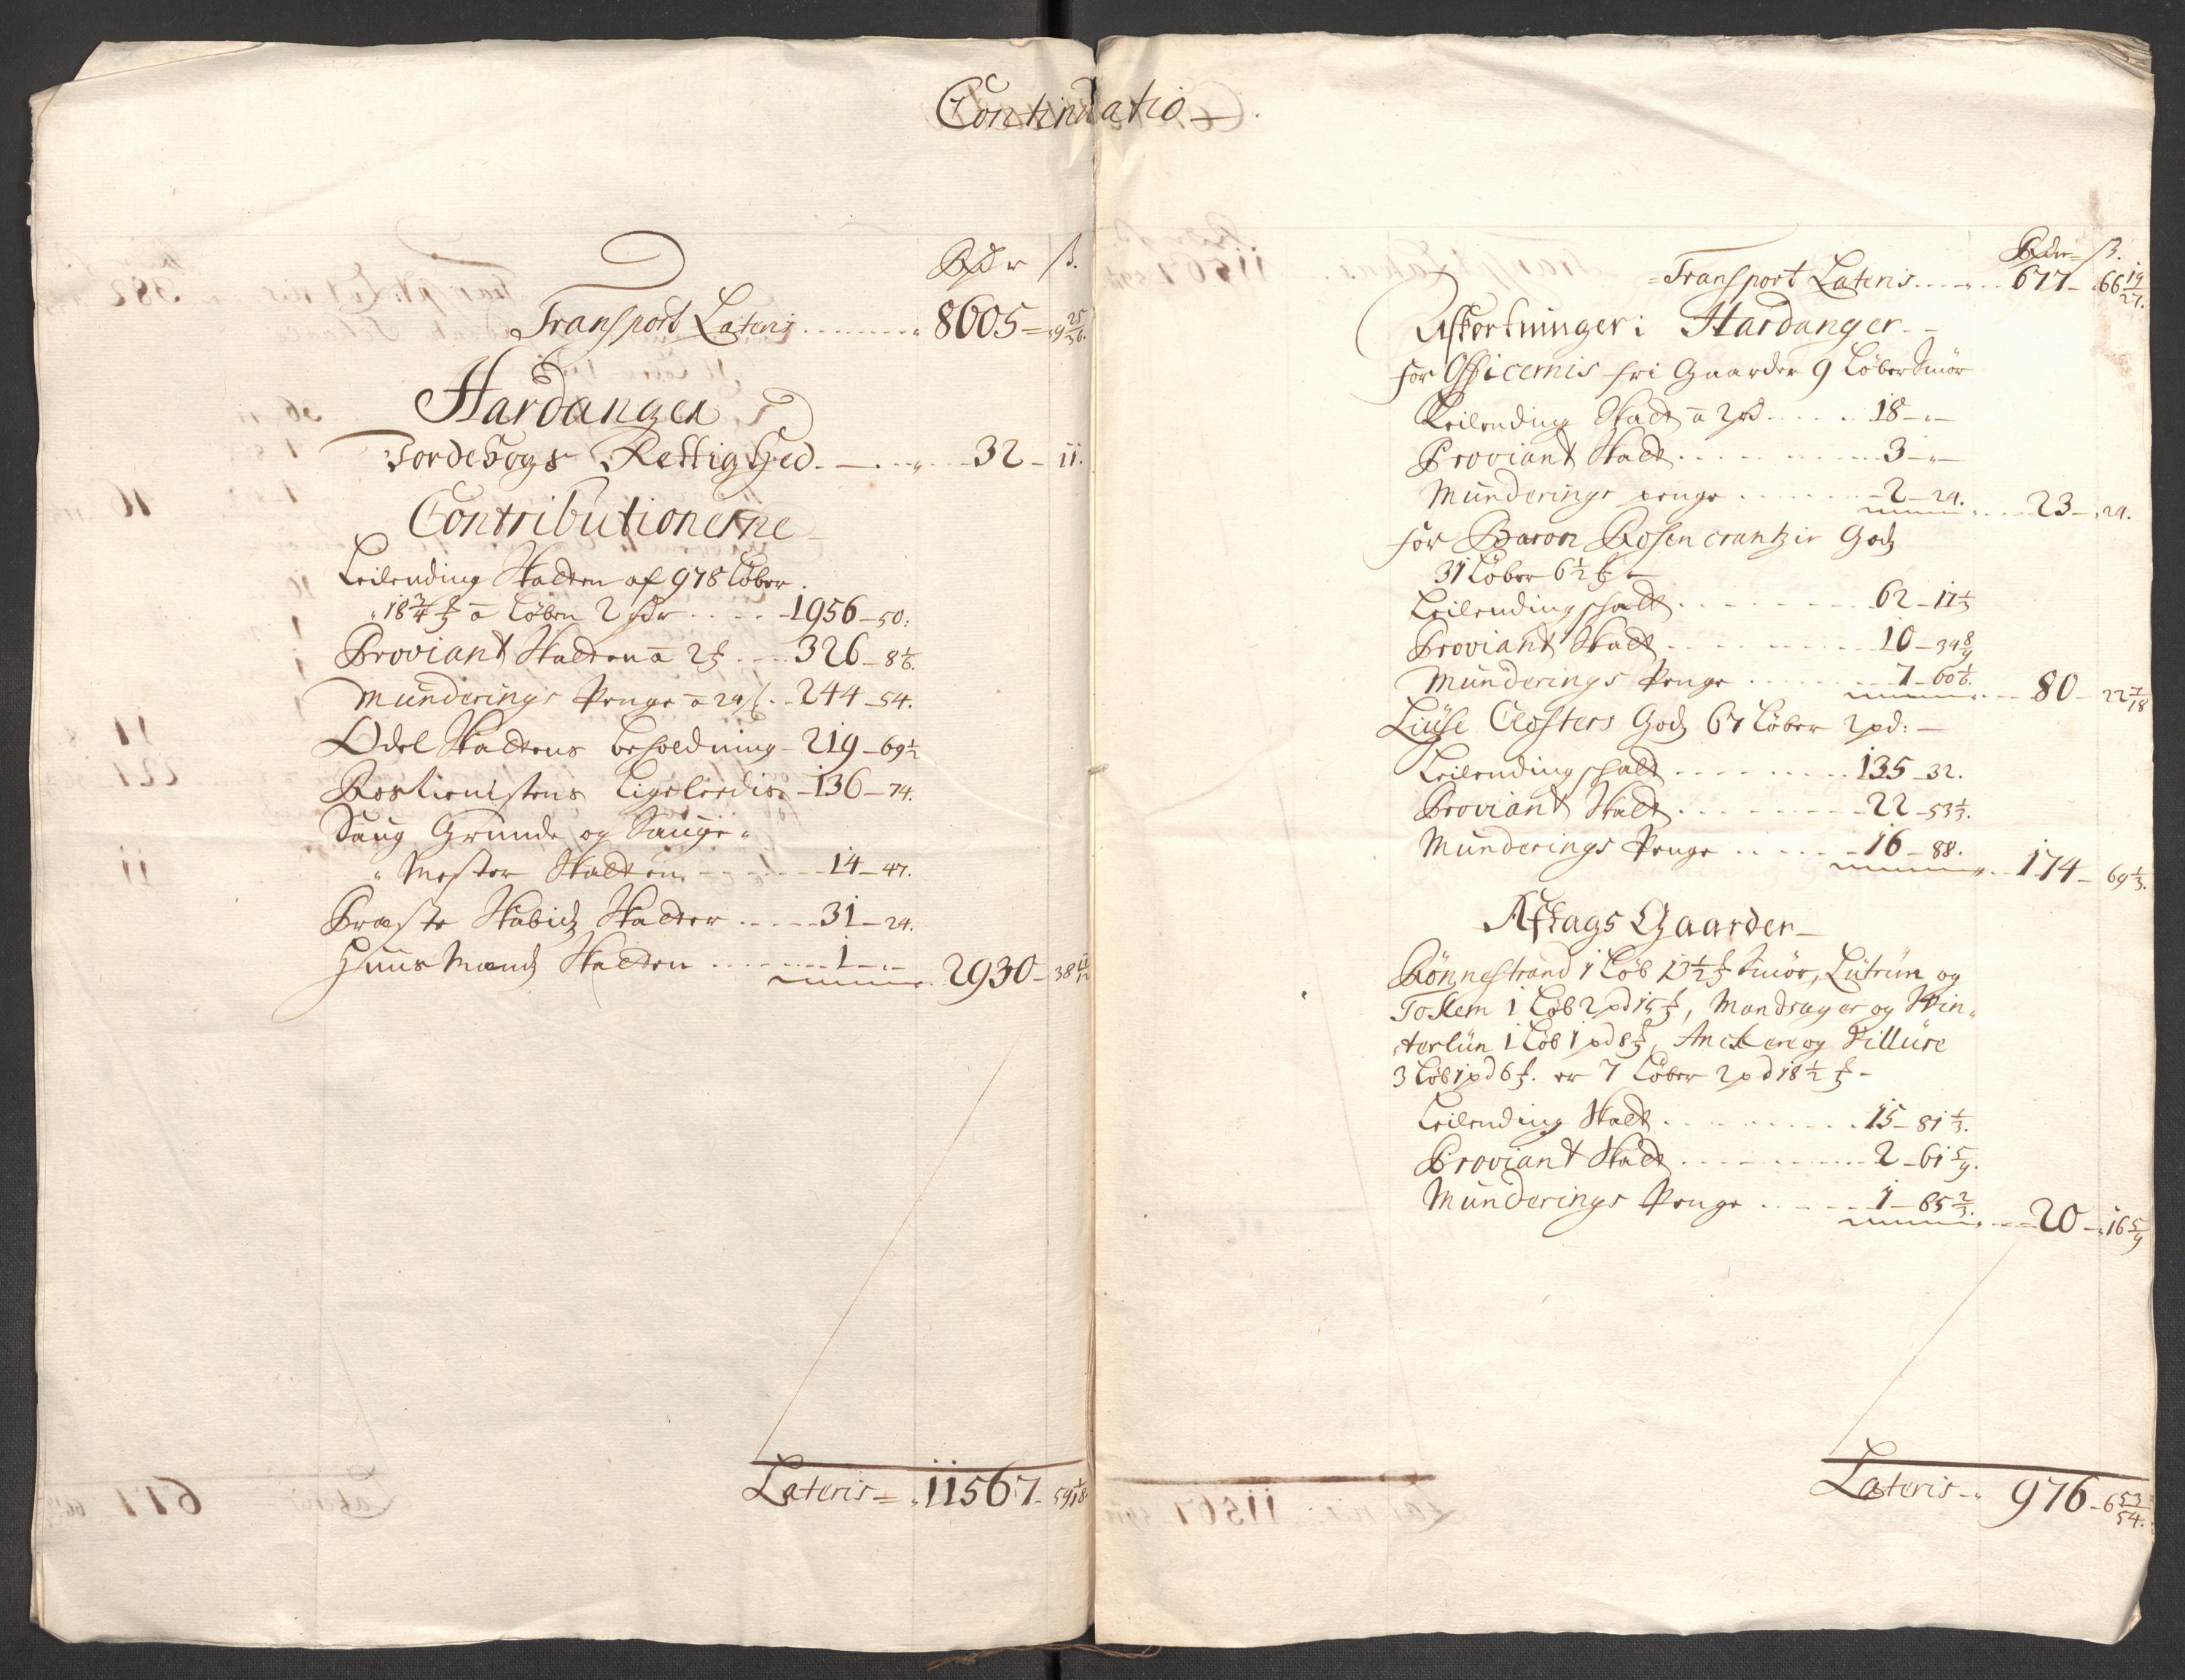 Continuatio
Rdr ß.
Transport Lateris 8605 – 9 25/36.
Hardanger
Jordebogs Rettighed 32 – 11.
Contributionerne
Leilending Skatten af 978 Løber
18 3/4 ℔ a Løben 2 Rdr 1956 – 50:
Proviant Skatten a 2 ℔ 326 – 8 1/6.
Munderings Penge a 24 ß. 244 – 54.
Odel Skattens besoldning – 219 – 69 1/2
Rostienistens Ligeleedis – 136 – 74.
Saug Grunde og Sauge
Mester Skatten 14 – 47.
Præste Skatter 31 – 24.
Huusmands Skatten 1 – „ – 2930 – 38 11/12
Lateris 11567 – 59 11/18
Rdr ß.
Transport Lateris 677 – 66 19/27.
Afkortninger i Hardanger
for Officernis fri Gaarder 9 Løber Smør
Leilending Skatt a 2 rd 18 – „ –
Proviant Skatt 3 – „ –
Munderings penge 2 – 24. 23 – 24.
for Baron Rosencrantzis Gods
31 Løber 6 1/2 ℔
Leilending schatt 62 – 11 1/3
Proviant Skatt 10 – 34 8/9
Munderings Penge 7 – 60 1/6. 80 – 22 7/18
Liuse Closters Gods 67 Løber 2 pd: –
Leilending schatt 135 – 32.
Proviant Skatt 22 – 53 1/3.
Munderings Penge 16 – 88. 174 – 69 1/3.
Aftags Gaarder
Rønnestrand 1 Løb 13 1/2 ℔ Smør, Lutrün og
Tokem 1 Løb 2 pd 15 ℔, Mandsager og Win-
terlün 1 Løb 1 pd 8 ℔, Anckere og Killure
3 Løb 1 pd 6 ℔. er 7 Løber 2 pd 18 1/2 ℔ –
Leilending Skatt 15 – 81 1/3.
Proviant Skatt 2 – 61 5/9.
Munderings Penge 1 – 65 2/3. 20 – 16 5/9
Lateris 976 – 6 53/54.